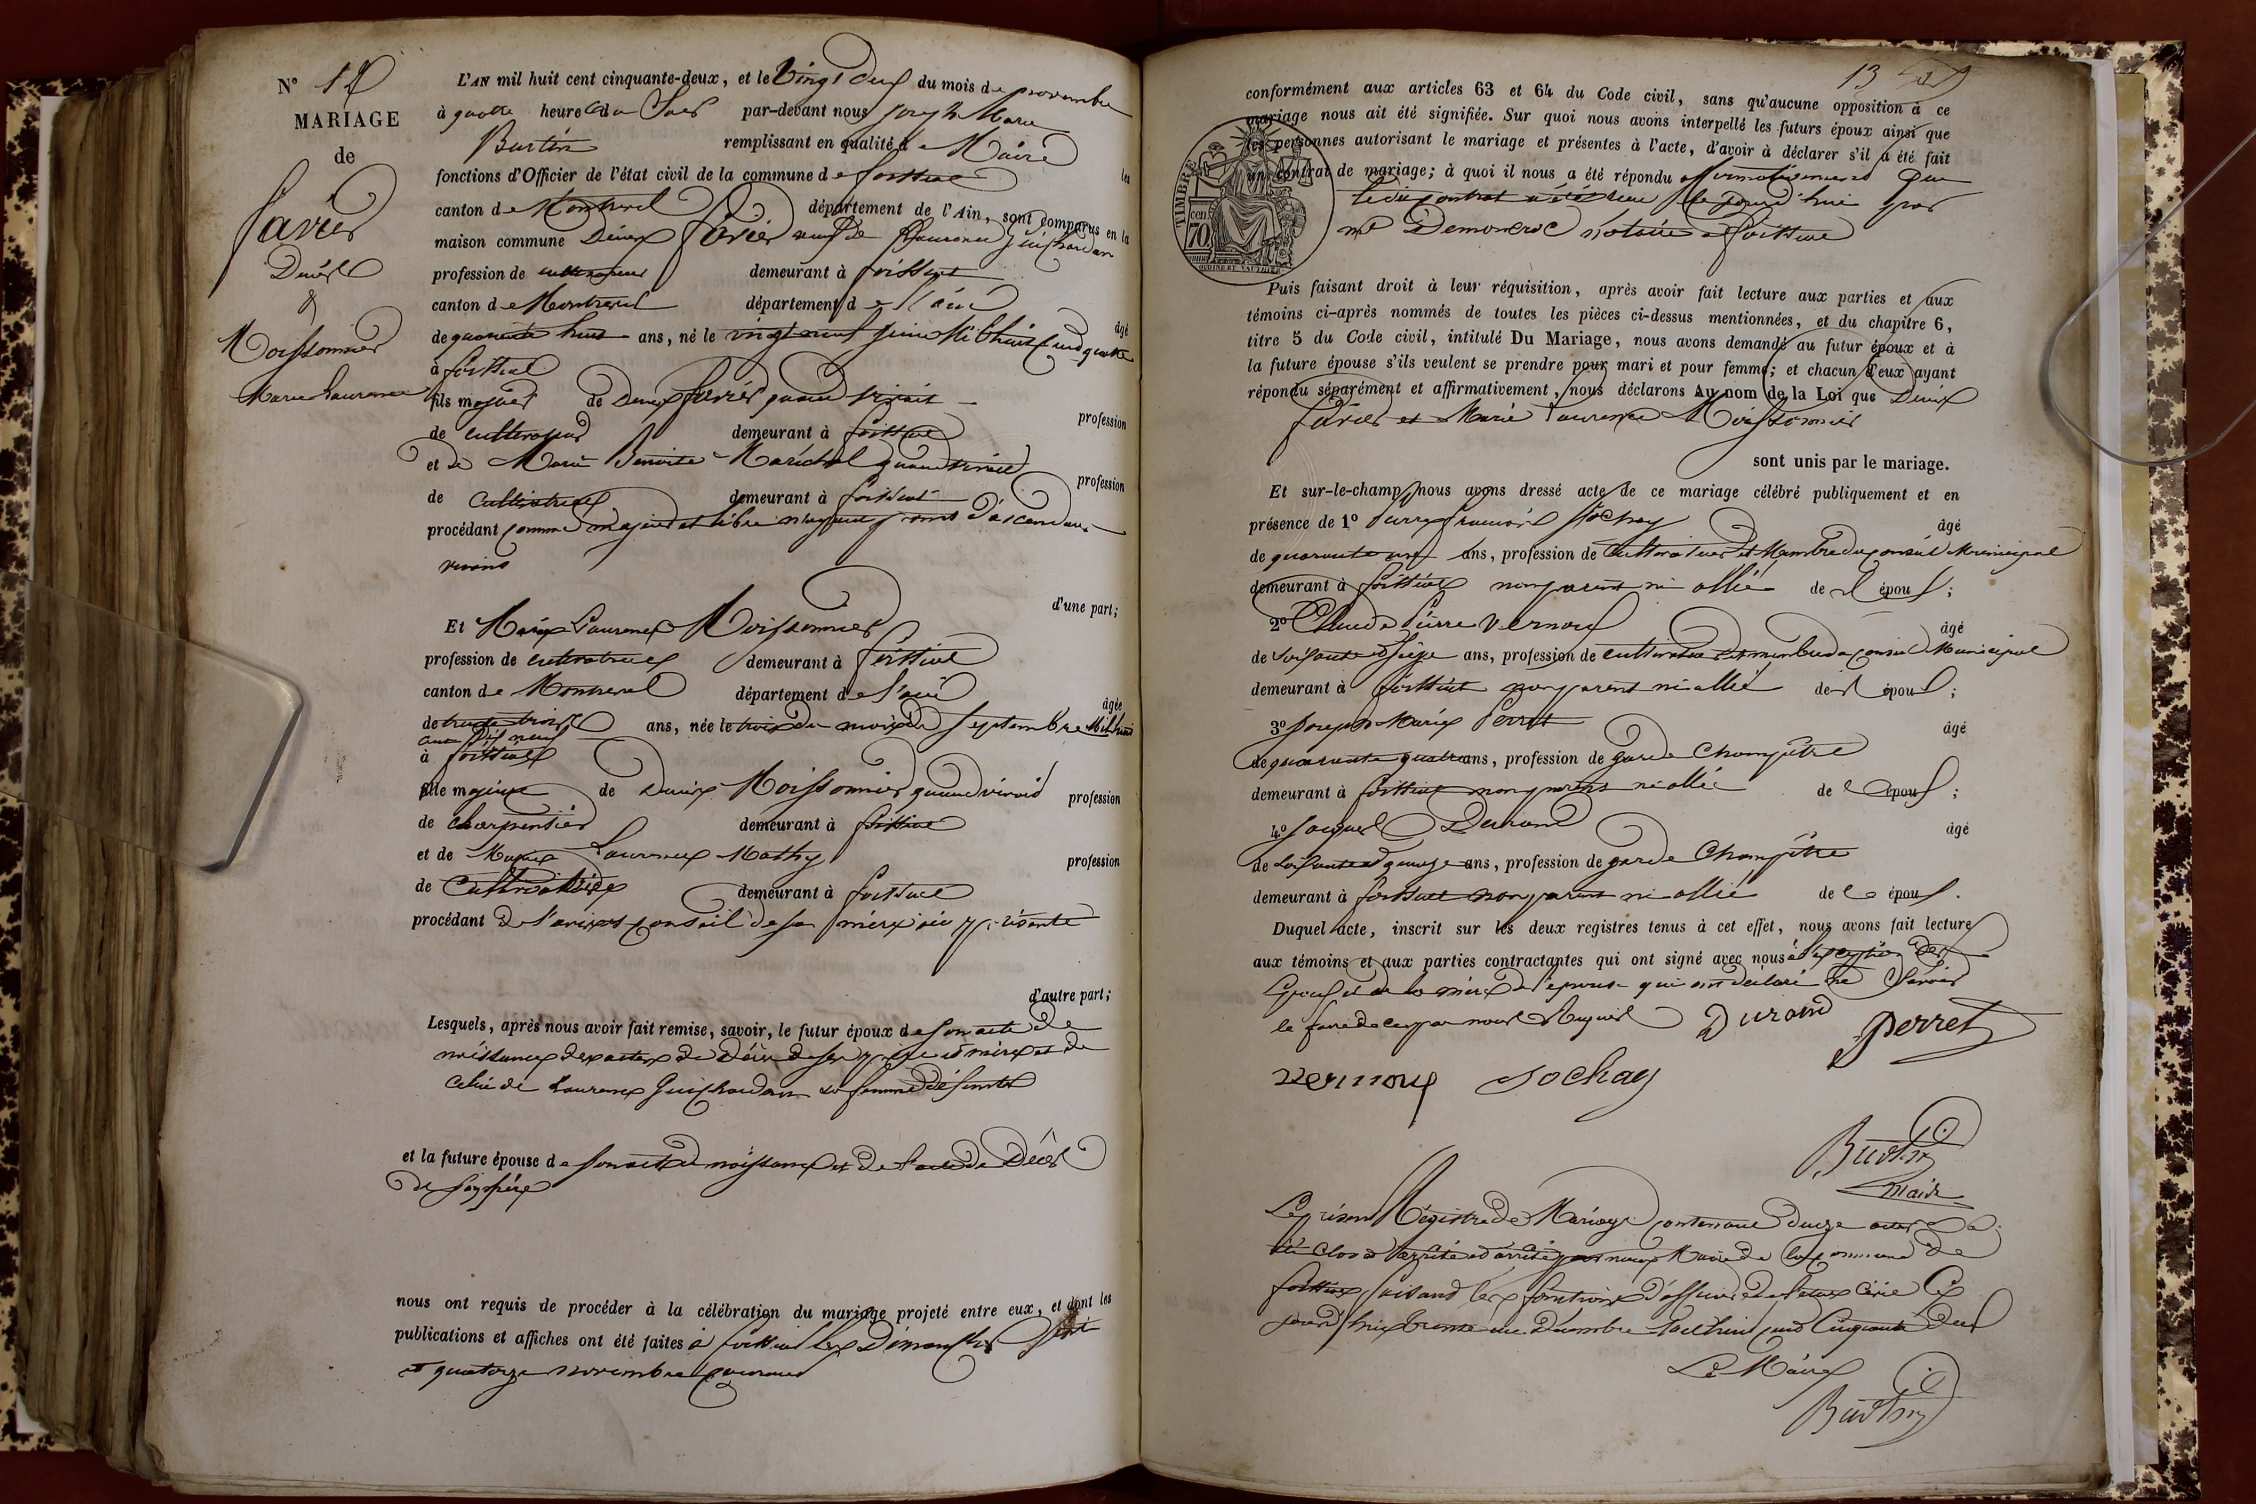 N° 12
MARIAGE
de
Favier
Denis
&
Moissonnier
Marie Laurence
L'AN mil huit cent cinquante-deux, et le Vingt deux du mois de novembre
à quatre heures du Soir par-devant nous Joseph Marie
remplissant en qualité de Maire
fonctions d'Officier de l'état civil de la commune de foissiat les
canton de Montrevel département de l'Ain, sont comparus en la
maison commune Denis favier veuf de Laurence Guichardan
profession de cultivateur demeurant à foissiat
canton de Montrevel département de l'ain
âgé
de quarante huit ans, né le vingt neuf Juin Mil huit Cent quatre
à foissiat
fils majeur de Denis favier quand vivait profession
de cultivateur demeurant à foissiat
et de Marie Benoite Maréchal quand vivait profession
de Cultivatrice demeurant à foissiat
procédant comme majeur et libre n'ayant point d'ascendans
vivans
d'une part;
Et Marie Laurence Moissonnier
profession de cultivatrice demeurant à foissiat
canton de Montrevel département de l'ain
âgée
de trente trois ans, née le trois du mois de Septembre Mil huit
cent dix neuf
à foissiat
fille majeure de Denis Moissonnier quand vivait profession
de charpentier demeurant à foissiat
et de Marie Laurence Mathy profession
de Cultivatrice demeurant à foissiat
procédant de l'avis et conseil de sa mère ici présente
d'autre part;
Lesquels, après nous avoir fait remise, savoir, le futur époux de son acte de
naissance des actes de décès de ses père et mère et de
celui de Laurence Guichardan sa femme défunte
et la future épouse de son acte de naissance et de l'acte de Décès
de son père
nous ont requis de procéder à la célébration du mariage projeté entre eux, et dont les
publications et affiches ont été faites à foissiat les Dimanches Sept
et quatorze novembre courant
13
conformément aux articles 63 et 64 du Code civil, sans qu'aucune opposition à ce
mariage nous ait été signifiée. Sur quoi nous avons interpellé les futurs époux ainsi que
les personnes autorisant le mariage et présentes à l'acte, d'avoir à déclarer s'il a été fait
un contrat de mariage; à quoi il nous a été répondu affirmativement que
ledit contrat a été reçu ce jourd'hui par
me notaire à foissiat
TIMBRE
cen
70
Puis faisant droit à leur réquisition, après avoir fait lecture aux parties et aux
témoins ci-après nommés de toutes les pièces ci-dessus mentionnées, et du chapitre 6,
titre 5 du Code civil, intitulé Du Mariage, nous avons demandé au futur époux et à
la future épouse s'ils veulent se prendre pour mari et pour femme; et chacun d'eux ayant
répondu séparément et affirmativement, nous déclarons Au nom de la Loi que Denis
favier et Marie Laurence Moissonnier
sont unis par le mariage.
Et sur-le-champ nous avons dressé acte de ce mariage célébré publiquement et en
présence de 1° Pierre françois Sochay âgé
de quarante neuf ans, profession de Cultivateur et Membre du conseil Municipal
demeurant à foissiat non parent ni allié de l'époux;
2° Claude Pierre Vernoux âgé
de Soixante et Seize ans, profession de cultivateur et membre du conseil Municipal
demeurant à foissiat non parent ni allié de l'époux;
3° Joseph Marie Perret âgé
de quarante quatre ans, profession de garde Champêtre
demeurant à foissiat non parent ni allié de l'époux;
4° Jacques Durand âgé
de Soixante et quinze ans, profession de garde Champêtre
demeurant à foissiat non parent ni allié de l'époux.
Duquel acte, inscrit sur les deux registres tenus à cet effet, nous avons fait lecture
aux témoins et aux parties contractantes qui ont signé avec nous à l'exception des
Epoux et de la mère de l'épouse qui ont déclaré ne Savoir
le faire de ce par nous Requis Durand Perret
Vernoux Sochay
maire
Le présent Régistre de Mariage contenant douze actes a
été clos et arrêté par nous Maire de la commune de
foissiat faisant les fonctions d'officier de l'état Civil Ce
jourd'hui trente un Décembre Mil huit cent Cinquante deux
Le Maire